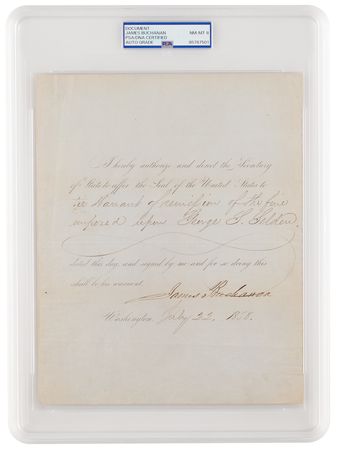 DOCUMENT
JAMES BUCHANAN
PSA/DNA CERTIFIED
AUTO GRADE
NM-MT 8
85787501
I hereby authorize and direct the Secretary
of State to affix the Seal of the United States to
Warrant of remission of the fine
imposed upon George S. Golden.
dated this day, and signed by me and for so doing this
shall be his warrant.
James Buchanan
Washington, July 22, 1858.